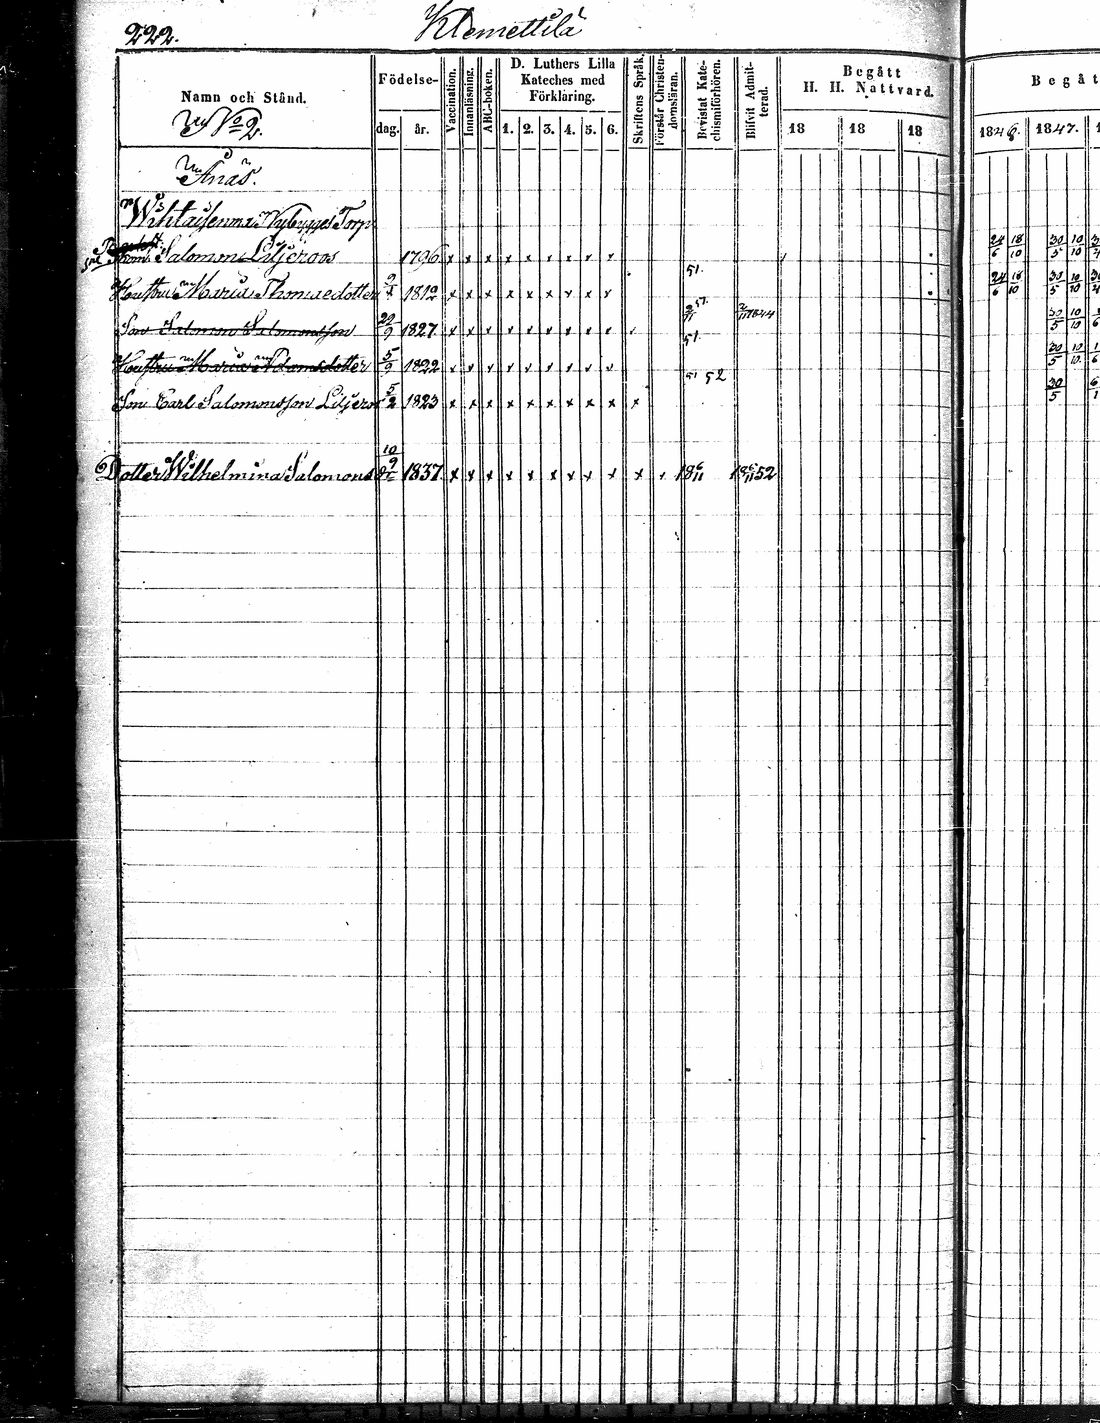 222.
Klemettilä
Namn och Stånd.
Födelse-
dag. år.
Vaccination.
Innanläsning.
ABC-boken.
D. Luthers Lilla
Kateches med
Förklaring.
1. 2. 3. 4. 5. 6.
Skriftens Språk.
Förstår Christen-
domsläran.
Bevistat Kate-
chismiförhören.
Blifvit Admit-
terad.
Begått
H. H. Nattvard.
18 18 18
Begåt
1846. 1847. 1
No 2.
Anäs.
Nybygges Torp
Salomon Liljeroos 1796 x x x x x x x x x 24/6 18/10 30/5 10/10
Hustru Maria Thomaedotter 1812 x x x x x x x x x 51. 24/6 18/10 30/5 10/10
Son Salomon Salomonsson 20/9 1827 x x x x x x x x x 1844 30/5 10/10
Hustru Maria Adamsdotter 5/9 1822 x x x x x x x x x 51. 30/5 10/10
Son Carl Salomonsson Liljeros 5/2 1823 x x x x x x x x x x 51 52 30/5
Dotter Wilhelmina Salomons 1837 x x x x x x x x x x 18 6/11 18 6/11 52